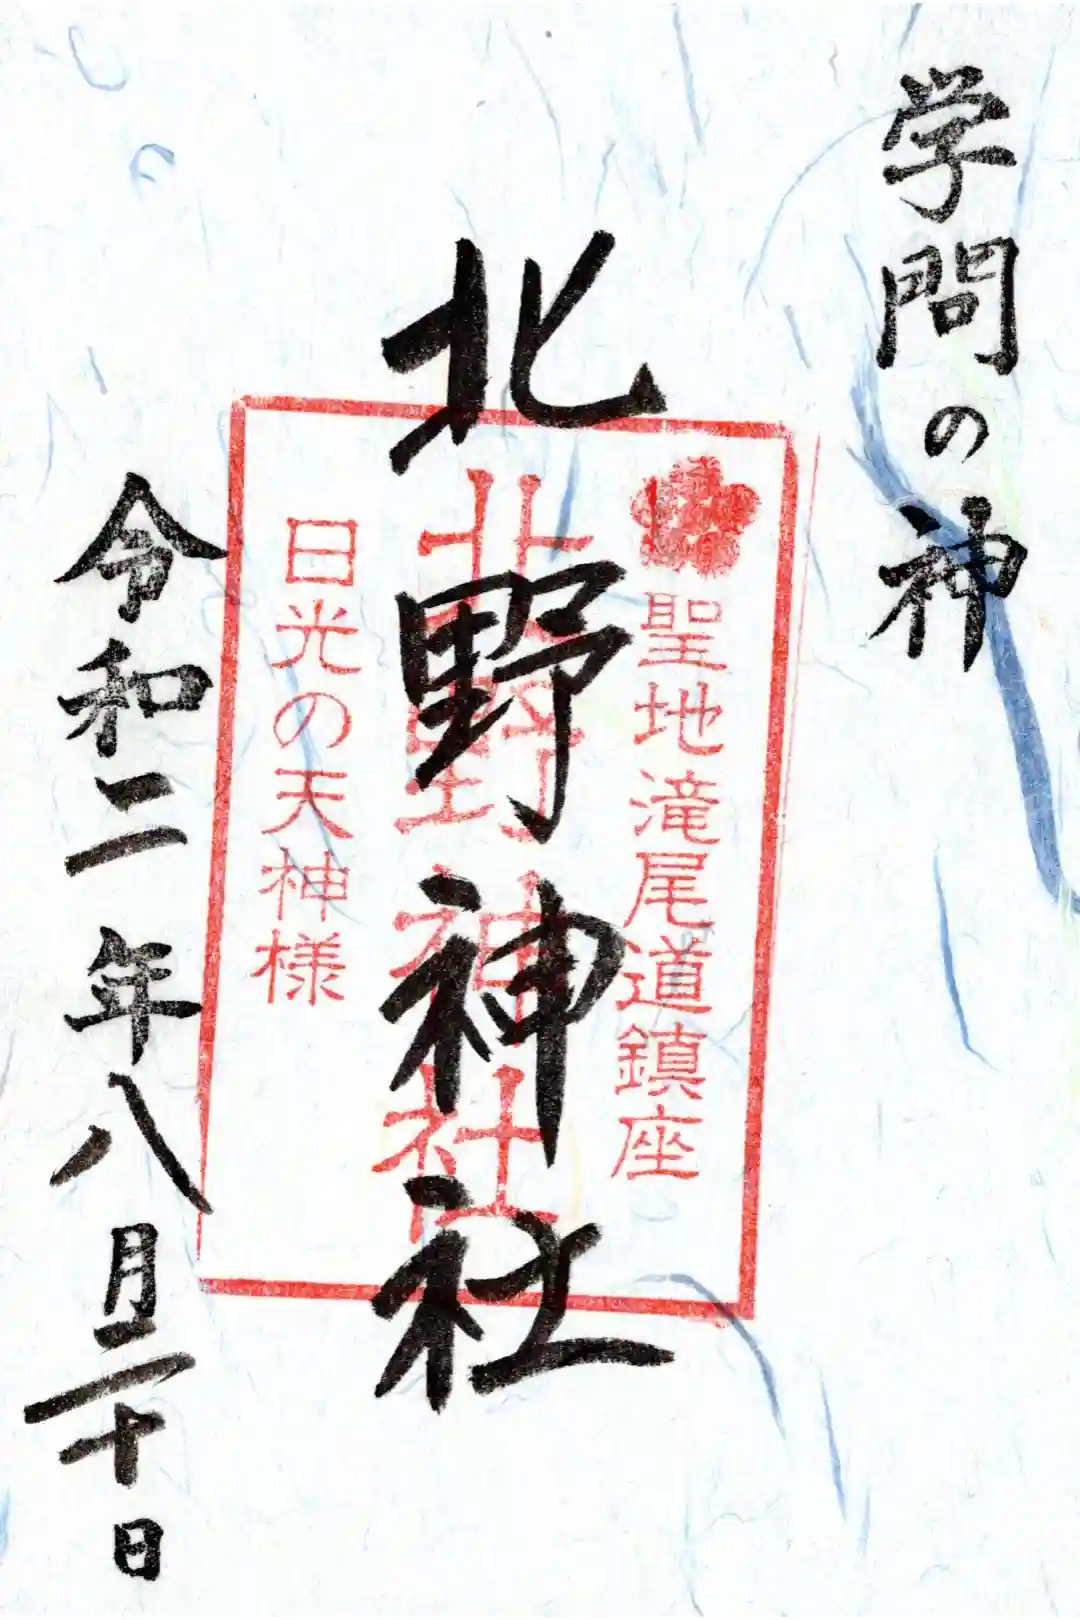 学問の神
北野神社
聖地滝尾道鎮座
北野神社
日光の天神様
令和二年八月二十日